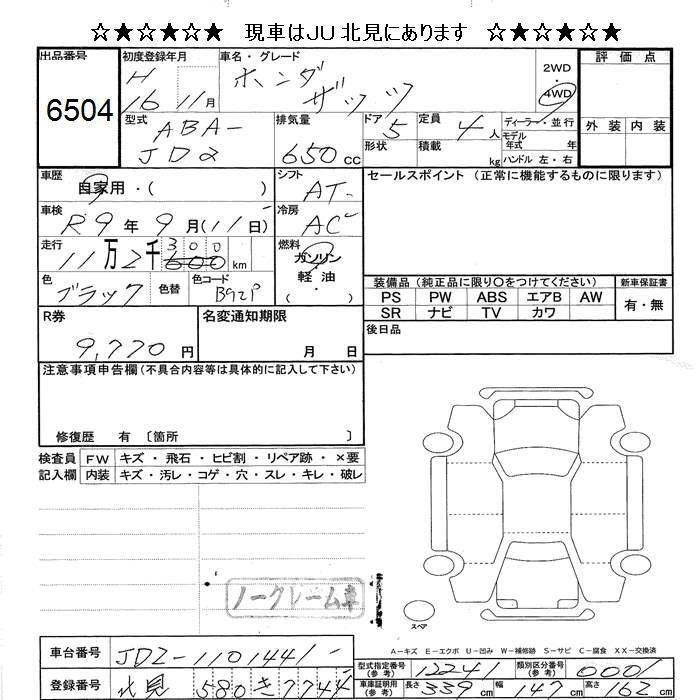 ☆★☆★☆★ 現車はJU北見にあります ☆★☆★☆★
出品番号
6504
初度登録年月
H
16 11月
車名・グレード
ホンダ
ザッツ
2WD
・
4WD
評価点
外装 内装
型式
ABA-
JD2
排気量
650cc
ドア 5
形状
定員 4人
積載 kg
ディーラー・並行
モデル
年式 年
ハンドル 左・右
車歴
自家用・( )
シフト
AT
車検
R9年9月(11日)
冷房
AC
走行
11万2千300km
600
燃料
ガソリン
軽・油
( )
色
ブラック
色替
色コード
B92P
セールスポイント (正常に機能するものに限ります)
装備品 (純正品に限り○をつけてください)
PS PW ABS エアB AW
SR ナビ TV カワ
新車保証書
有・無
後日品
R券
9,770円
名変通知期限
月 日
注意事項申告欄 (不具合内容等は具体的に記入して下さい)
修復歴 有 〔箇所 〕
検査員
記入欄
FW キズ・飛石・ヒビ割・リペア跡・×要
内装 キズ・汚レ・コゲ・穴・スレ・キレ・破レ
ノークレーム車
スペア
A-キズ E-エクボ U-凹み W-補修跡 S-サビ C-腐食 XX-交換済
車台番号
JD2-1101441
登録番号
北見 580 き 7744
型式指定番号
(参考)
12241
類別区分番号
(参考)
0001
車庫証明用
(参考)
長さ 339cm 幅 147cm 高さ 162cm